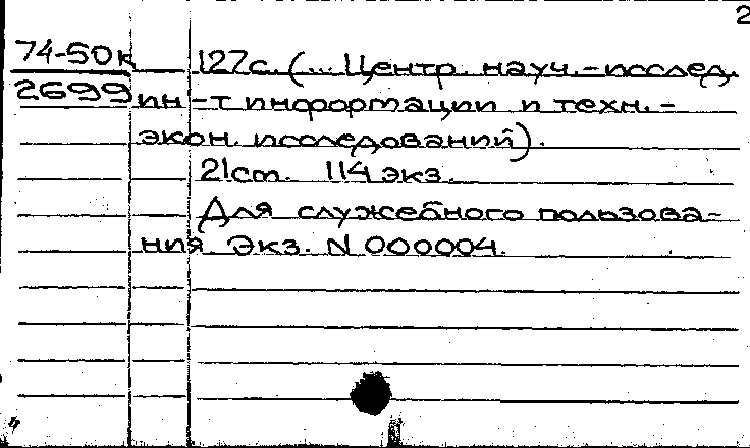 2
74-50к 127с. (... Центр. науч.-исслед.
2699 ин-т информации и техн.-
экон. исследований).
21см. 114 экз.
Для служебного пользова-
ния Экз. N 000004.